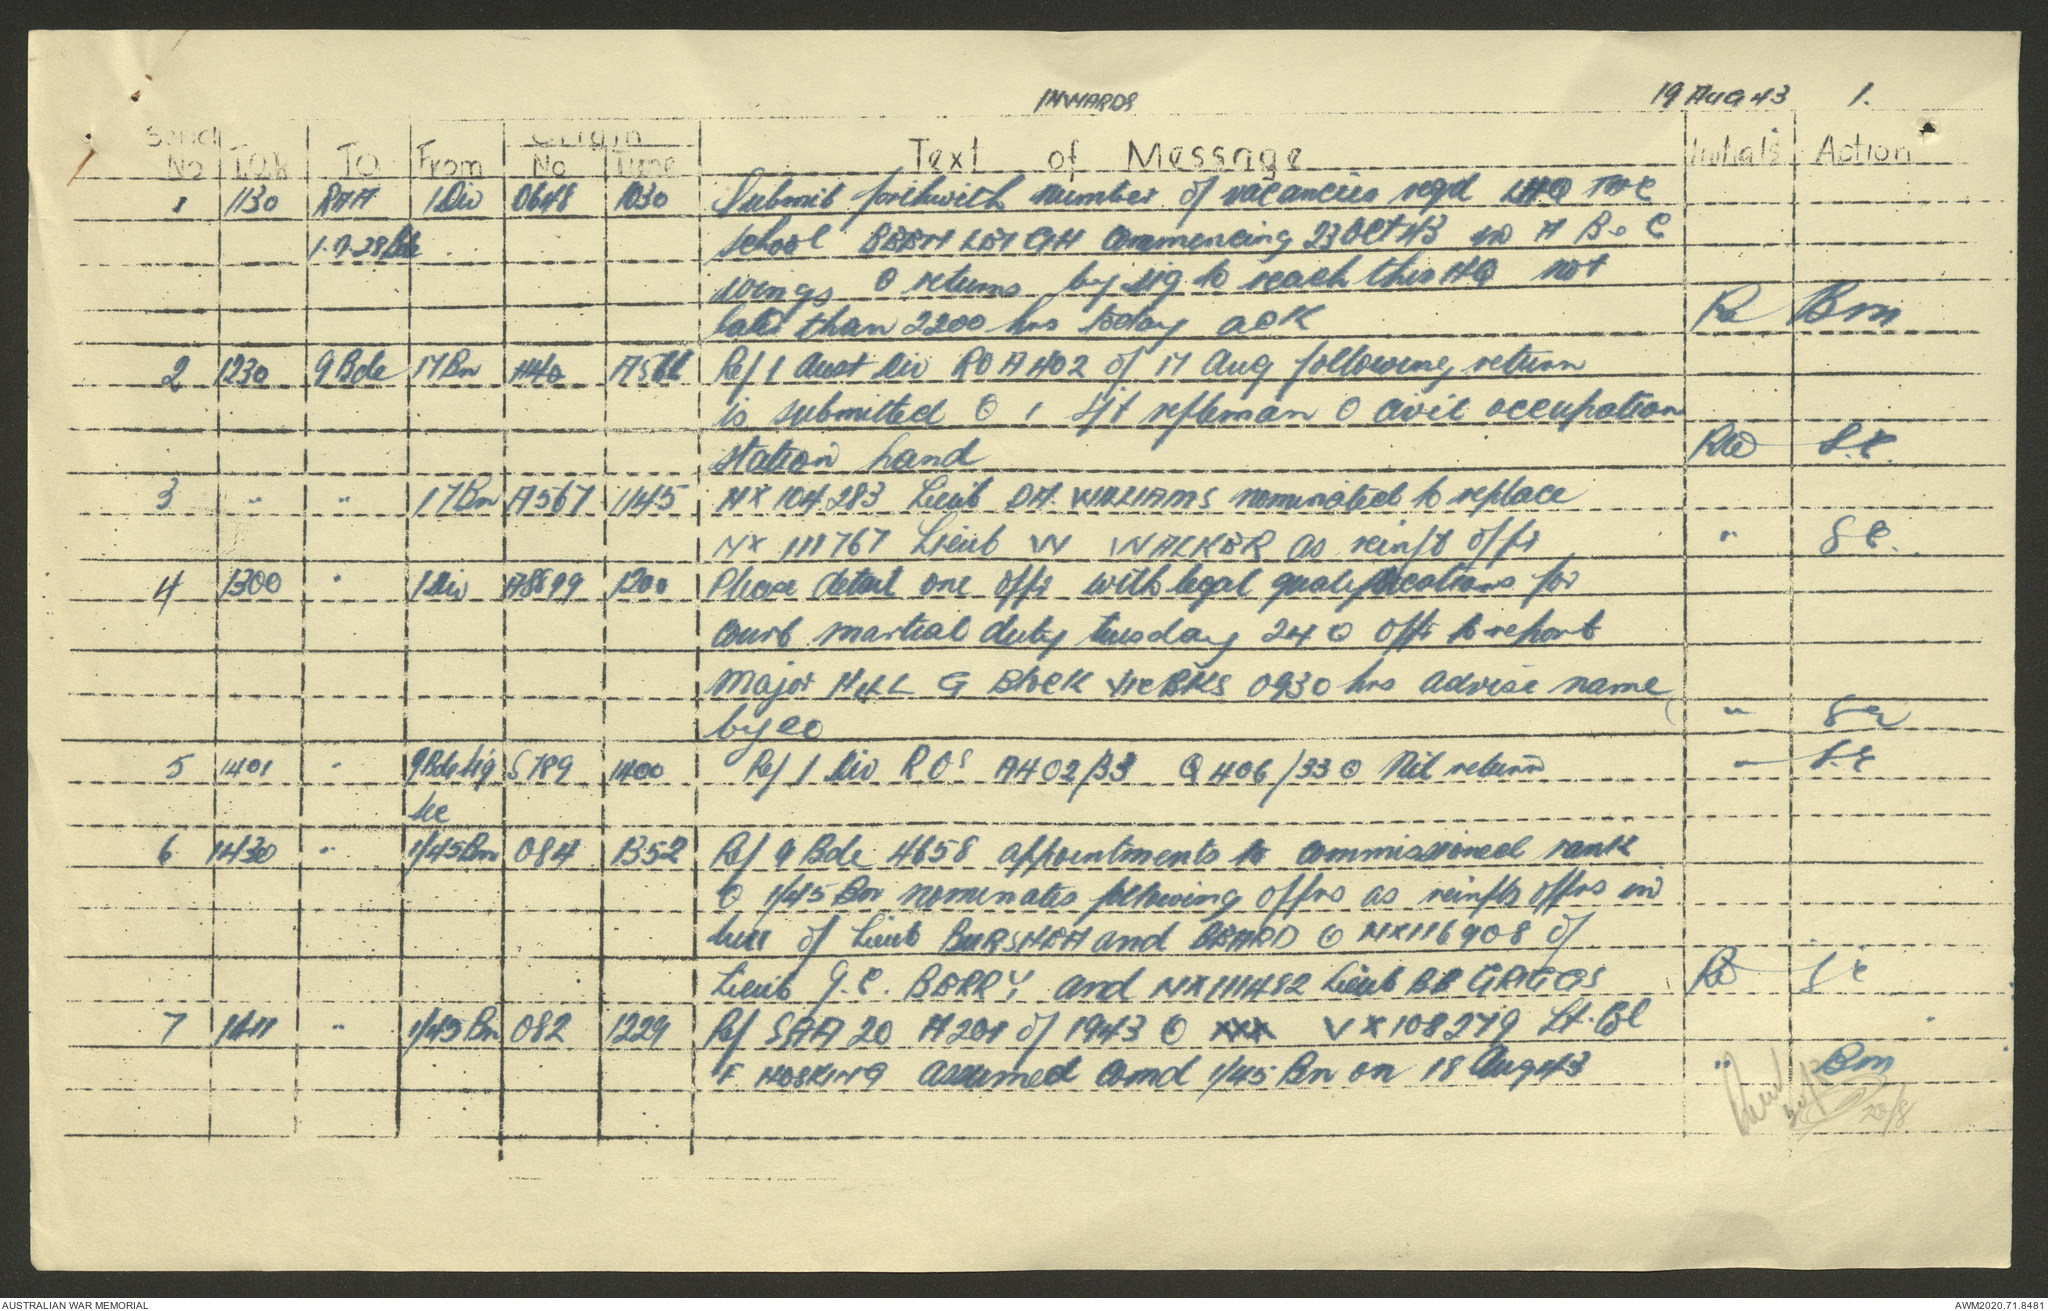 INWARDS 19 AUG 43 1.
Serial Origin
No TOR TO From No Time Text of Message Initials Action
1 1130 RAA 1 Div 0648 1030 Submit forthwith number of vacancies reqd LHQ
1.9.28 Bde school BEENLEIGH commencing 23 Oct 43 in A B & C
wings O returns by sig to reach this HQ not
later than 2200 hrs today ack BM
2 1230 9 Bde 17 Bn 1140 Ref 1 Aust Div RO A402 of 17 Aug following return
is submitted O 1 rifleman O civil occupation
station hand RW S.C.
3 " " 17 Bn A567 1145 NX 104283 Lieut DA. WILLIAMS nominated to replace
NX 111767 Lieut W WALKER as reinft offr " S C.
4 1300 " 1 Div A8699 1200 Please detail one offr with legal qualifications for
court martial duty tuesday 24 O Offr to report
Major HALL G Block VIC BKS 0930 hrs advise name
by " S C
5 1401 " 9 Bde Sig S789 1400 Ref 1 Div ROs A402/33 Q 406/33 O Nil return " S C
6 1430 " 1/45 Bn 084 1352 Ref 9 Bde 4658 appointments to commissioned rank
O 1/45 Bn nominates following offrs as reinfts offrs in
lieu of Lieut BURSHEA and BEARD O NX116908 of
Lieut J.C. BERRY and NX111482 Lieut BB GRIGGS RW S C
7 1411 " 1/45 Bn 082 1229 Ref SAA 20 A201 of 1943 O XXX VX108279 Lt. Col
F HOSKING assumed comd 1/45 Bn on 18 Aug 43 " BM
20/8
AUSTRALIAN WAR MEMORIAL AWM2020.71.8481